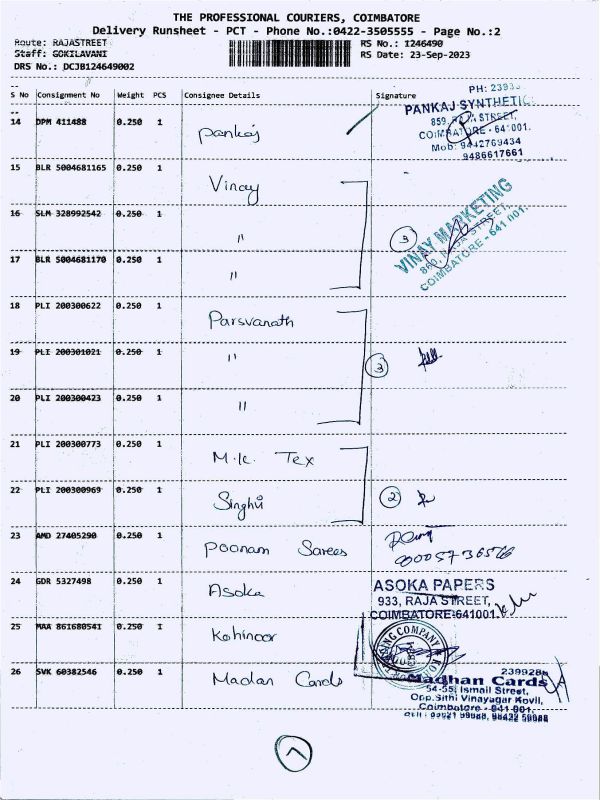 THE PROFESSIONAL COURIERS, COIMBATORE
Delivery Runsheet - PCT - Phone No.:0422-3505555 - Page No.:2
Route: RAJASTREET RS No.: 1246490
Staff: GOKILAVANI RS Date: 23-Sep-2023
DRS No.: DCJB124649002
S No Consignment No Weight PCS Consignee Details Signature
14 DPM 411488 0.250 1 Pankaj
PANKAJ SYNTHETIC
859, RAJA STREET,
COIMBATORE - 641 001.
Mob: 9442769434
9486617661
15 BLR 5004681165 0.250 1 Vinay
16 SLM 328992542 0.250 1 " 3
VINAY MARKETING
860, RAJA STREET,
COIMBATORE - 641 001.
17 BLR 5004681170 0.250 1 "
18 PLI 200300622 0.250 1 Parsvanath
19 PLI 200301021 0.250 1 " 3
20 PLI 200300423 0.250 1 "
21 PLI 200300773 0.250 1 M.K. Tex
22 PLI 200300969 0.250 1 Singhvi 2
23 AMD 27405290 0.250 1 Poonam Sarees
24 GDR 5327498 0.250 1 Asoka
ASOKA PAPERS
933, RAJA STREET,
COIMBATORE-641001.
25 MAA 861680541 0.250 1 Kohinoor
26 SVK 60382546 0.250 1 Madan Cards
Madhan Cards
54-55, Ismail Street,
Opp.Sithi Vinayagar Kovil,
Coimbatore - 641 001.